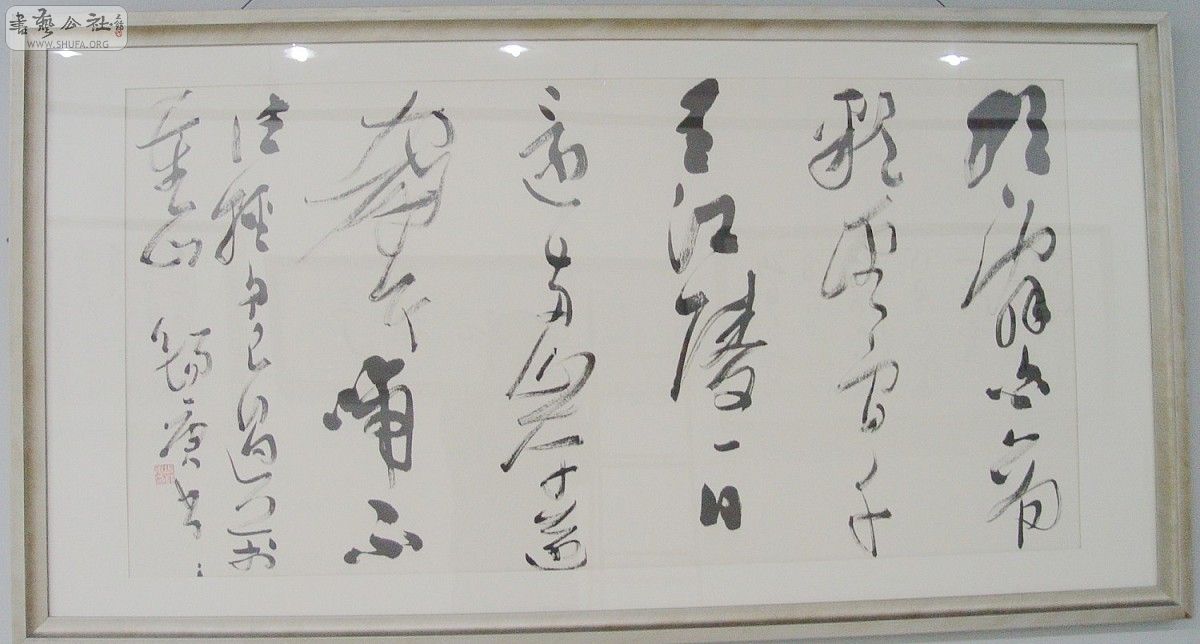 書藝公社
WWW.SHUFA.ORG
朝辭白帝
彩雲間千
里江陵一日
還兩岸猿
聲啼不
住輕舟已過万
重山 錫書